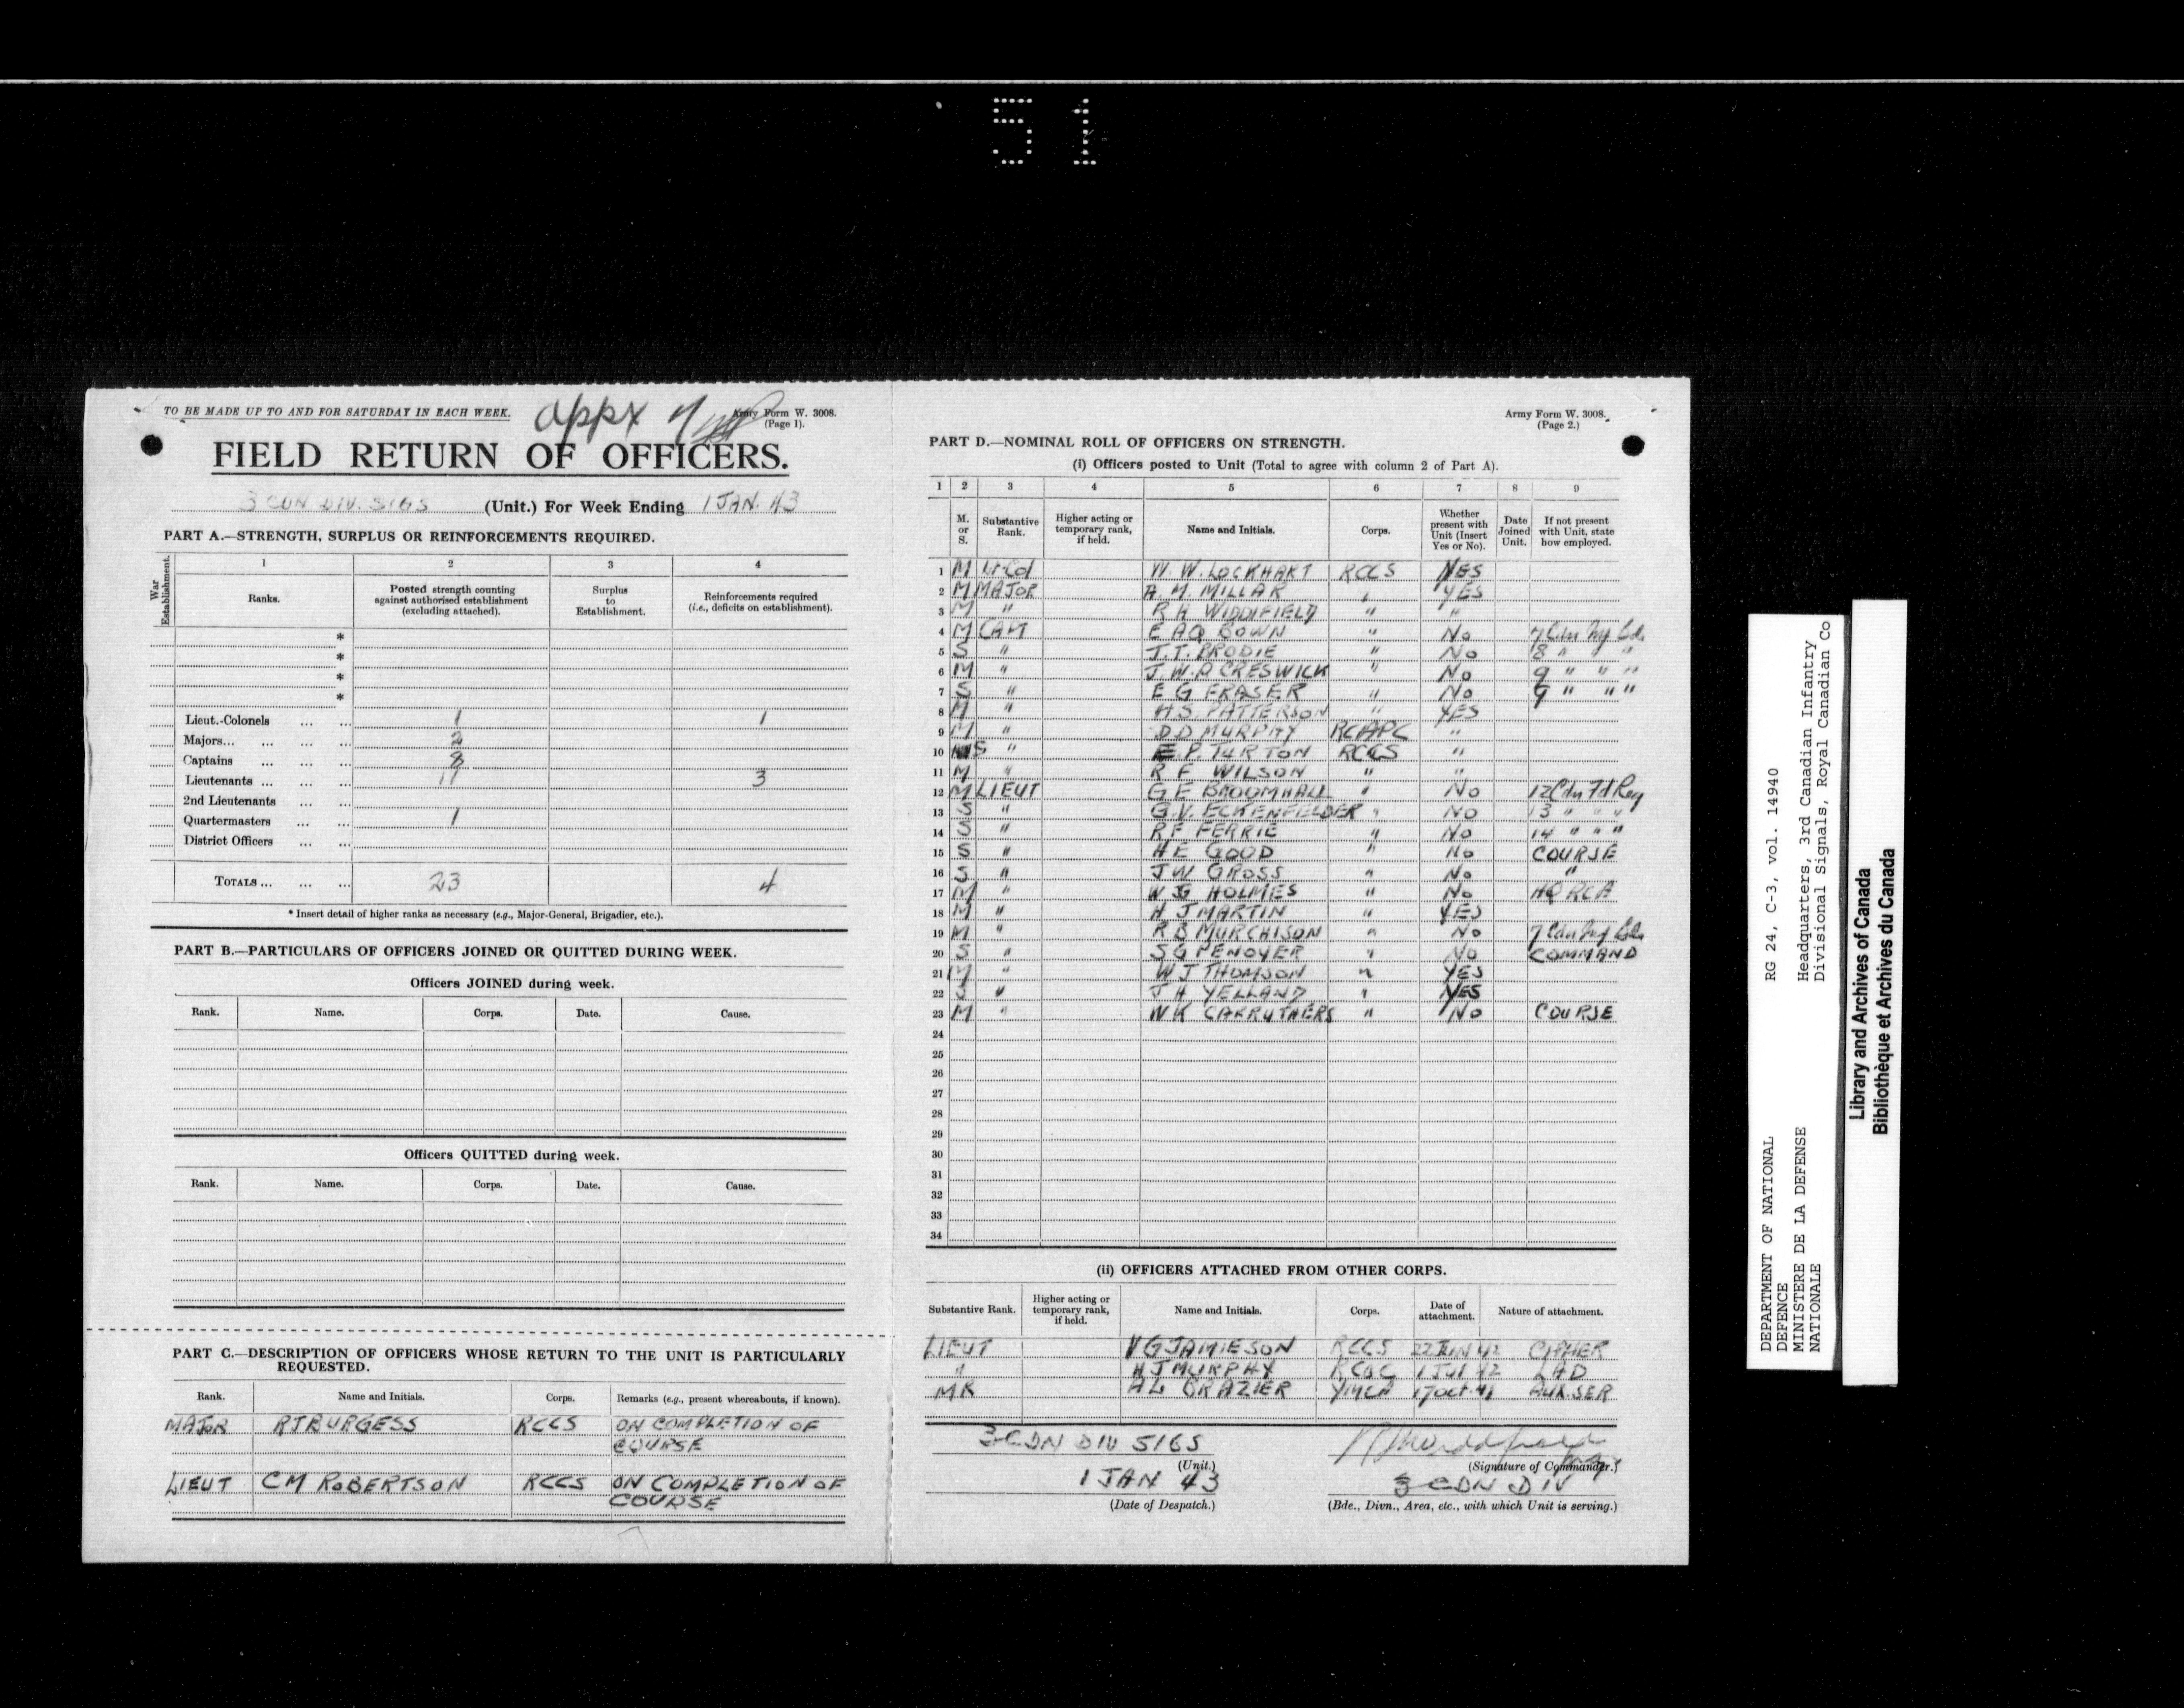 51
TO BE MADE UP TO AND FOR SATURDAY IN EACH WEEK.
appx
Army Form W. 3008.
(Page 1).
FIELD RETURN OF OFFICERS.
3 CDN DIV. SIGS (Unit.) For Week Ending 1 JAN. 43
PART A.—STRENGTH, SURPLUS OR REINFORCEMENTS REQUIRED.
War Establishment.
1 2 3 4
Ranks. Posted strength counting against authorised establishment (excluding attached). Surplus to Establishment. Reinforcements required (i.e., deficits on establishment).
*
*
*
*
Lieut.-Colonels ... ... 1 1
Majors... ... ... ... 2
Captains ... ... ... 8
Lieutenants ... ... ... 11 3
2nd Lieutenants ... ...
Quartermasters ... ... 1
District Officers ... ...
TOTALS ... ... ... 23 4
* Insert detail of higher ranks as necessary (e.g., Major-General, Brigadier, etc.).
PART B.—PARTICULARS OF OFFICERS JOINED OR QUITTED DURING WEEK.
Officers JOINED during week.
Rank. Name. Corps. Date. Cause.
Officers QUITTED during week.
Rank. Name. Corps. Date. Cause.
PART C.—DESCRIPTION OF OFFICERS WHOSE RETURN TO THE UNIT IS PARTICULARLY
REQUESTED.
Rank. Name and Initials. Corps. Remarks (e.g., present whereabouts, if known).
MAJOR RJ BURGESS RCCS ON COMPLETION OF
COURSE
LIEUT CM ROBERTSON RCCS ON COMPLETION OF
COURSE
Army Form W. 3008.
(Page 2.)
PART D.—NOMINAL ROLL OF OFFICERS ON STRENGTH.
(i) Officers posted to Unit (Total to agree with column 2 of Part A).
1 2 3 4 5 6 7 8 9
M. or S. Substantive Rank. Higher acting or temporary rank, if held. Name and Initials. Corps. Whether present with Unit (Insert Yes or No). Date Joined Unit. If not present with Unit, state how employed.
1 M Lt-Col W. W. LOCKHART RCCS YES
2 M MAJOR A. M. MILLAR " YES
3 M " R H WIDDIFIELD " "
4 M CAPT E A BOWN " No 7 Cdn Inf Bde
5 S " J. T. BRODIE " No 8 " " "
6 M " J. W. P CRESWICK " No 9 " " "
7 S " E G FRASER " No 9 " " "
8 M " H S PATTERSON " YES
9 M " D D MURPHY RCAPC "
10 S " E P. TURTON RCCS "
11 M " R F WILSON " "
12 M LIEUT G E BROOMHALL " No 12 Cdn Fd Reg
13 S " G. V. ECKENFELDER " No 13 " " "
14 S " R F FERRIE " No 14 " " "
15 S " H E GOOD " No COURSE
16 S " J W GROSS " No "
17 M " W G HOLMES " No HQ RCA
18 M " H J MARTIN " YES
19 M " R B MURCHISON " No 7 Cdn Inf Bde
20 S " S G PENOYER " No COMMAND
21 M " W J THOMSON " YES
22 S " J H YELLAND " YES
23 M " W K CARRUTHERS " No COURSE
24
25
26
27
28
29
30
31
32
33
34
(ii) OFFICERS ATTACHED FROM OTHER CORPS.
Substantive Rank. Higher acting or temporary rank, if held. Name and Initials. Corps. Date of attachment. Nature of attachment.
LIEUT V G JAMIESON RCCS 22 JUN 42 CIPHER
" H J MURPHY RCOC 1 JUL 42 LAD
MR A L BRAZIER YMCA 17 Oct 41 AUX. SER
3 CDN DIV SIGS
(Unit.)
(Signature of Commander.)
1 JAN 43
(Date of Despatch.)
3 CDN DIV
(Bde., Divn., Area, etc., with which Unit is serving.)
DEPARTMENT OF NATIONAL
DEFENCE
MINISTERE DE LA DEFENSE
NATIONALE
RG 24, C-3, vol. 14940
Headquarters, 3rd Canadian Infantry
Divisional Signals, Royal Canadian Co
Library and Archives of Canada
Bibliothèque et Archives du Canada